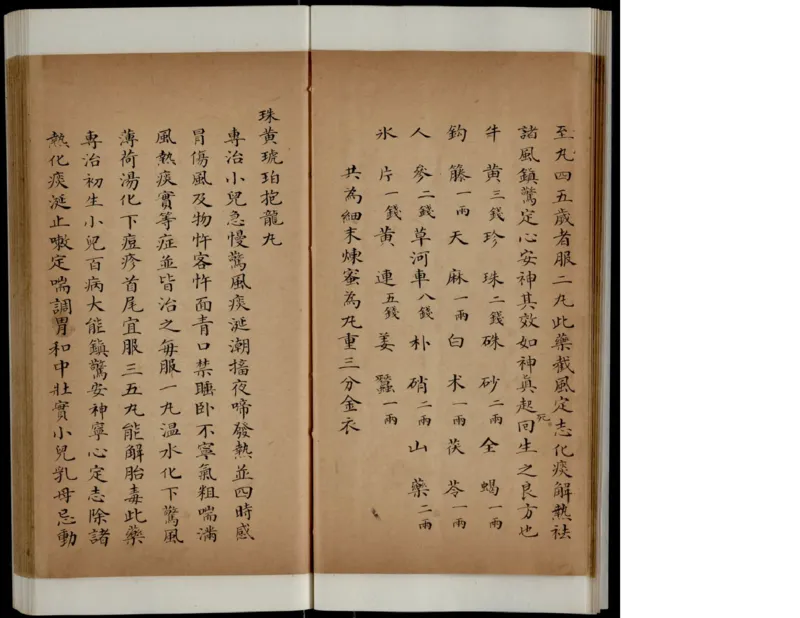 至九四五歲者服二丸此藥截風定志化痰解熱祛
諸風鎮驚定心安神其效如神眞起死回生之良方也
牛黃三錢珍珠二錢硃砂二兩全蝎一兩
鈎籐一兩天麻一兩白术一兩茯苓一兩
人參二錢草河車八錢朴硝二兩山藥二兩
氷片一錢黃連五錢姜蠶一兩
共為細末煉蜜為丸重三分金衣
珠黃琥珀抱龍丸
專治小兒急慢驚風痰涎潮搐夜啼發熱並四時感
冒傷風及物忤客忤面青口禁睡卧不寧氣粗喘滿
風熱痰實等症並皆治之每服一丸溫水化下驚風
薄荷湯化下痘疹首尾宜服三五丸能解胎毒此藥
專治初生小兒百病大能鎮驚安神寧心定志除諸
熱化痰涎止嗽定喘調胃和中壯實小兒乳母忌動